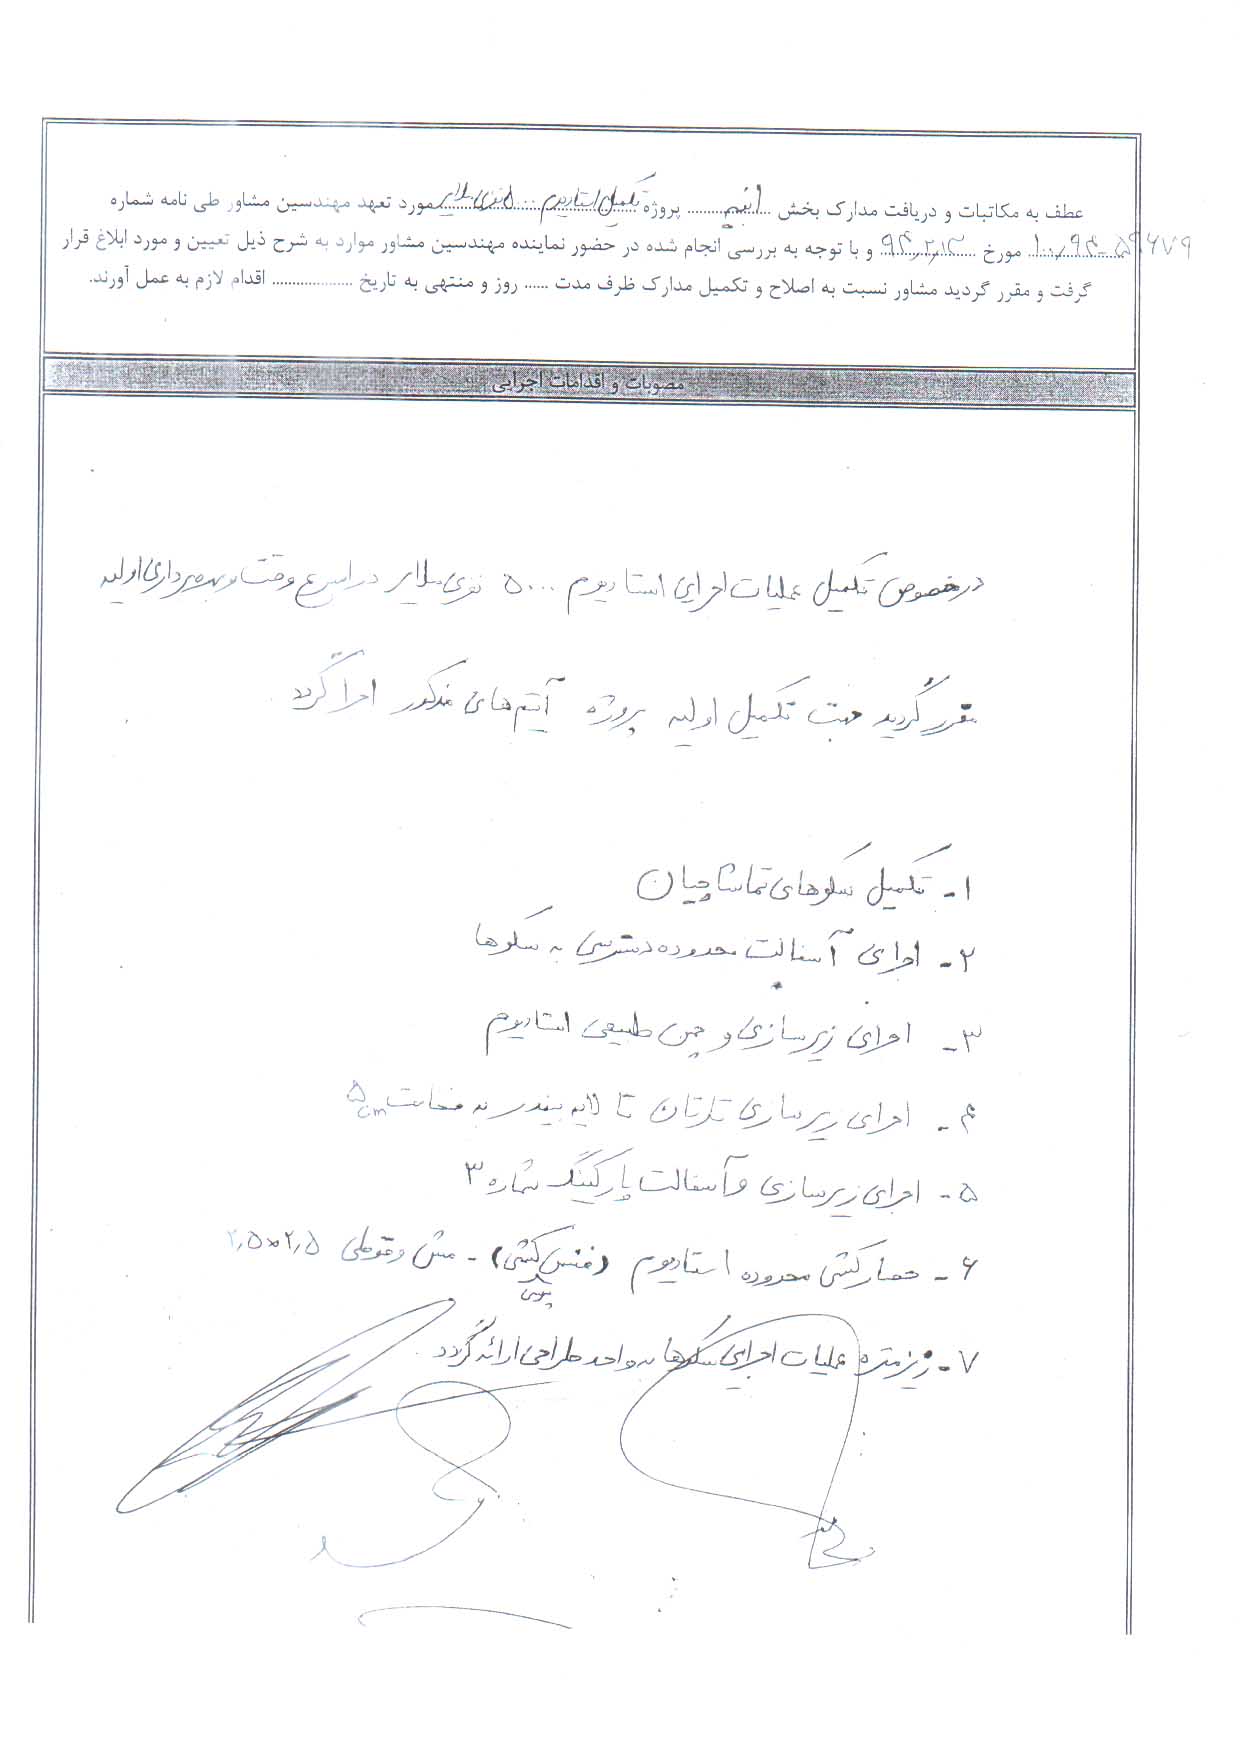 عطف به مکاتبات و دریافت مدارک بخش ... ابنیه ... پروژه تکمیل استادیوم ۵۰۰۰ نفری ملایر مورد تعهد مهندسین مشاور طی نامه شماره
۱۰۰٫۹۴-۵۹۶۷۹ مورخ ۹۴٫۲٫۱۳ و با توجه به بررسی انجام شده در حضور نماینده مهندسین مشاور موارد به شرح ذیل تعیین و مورد ابلاغ قرار
گرفت و مقرر گردید مشاور نسبت به اصلاح و تکمیل مدارک ظرف مدت ...... روز و منتهی به تاریخ .................. اقدام لازم به عمل آورند.
مصوبات و اقدامات اجرایی
در خصوص تکمیل عملیات اجرای استادیوم ۵۰۰۰ نفری ملایر در اسرع وقت و بهره برداری اولیه
مقرر گردید جهت تکمیل اولیه پروژه آیتم های مذکور اجرا گردد.
۱- تکمیل سکوهای تماشاچیان
۲- اجرای آسفالت محدوده دسترسی به سکوها
۳- اجرای زیرسازی و چمن طبیعی استادیوم
۴- اجرای زیرسازی تارتان تا لایه بیندر به ضخامت ۵cm
۵- اجرای زیرسازی و آسفالت پارکینگ شماره ۳
۶- حصارکشی محدوده استادیوم (فنس کشی) - مش و قوطی ۲٫۵×۲٫۵
۷- ریزمتره عملیات اجرای سکوها به واحد طراحی ارائه گردد.